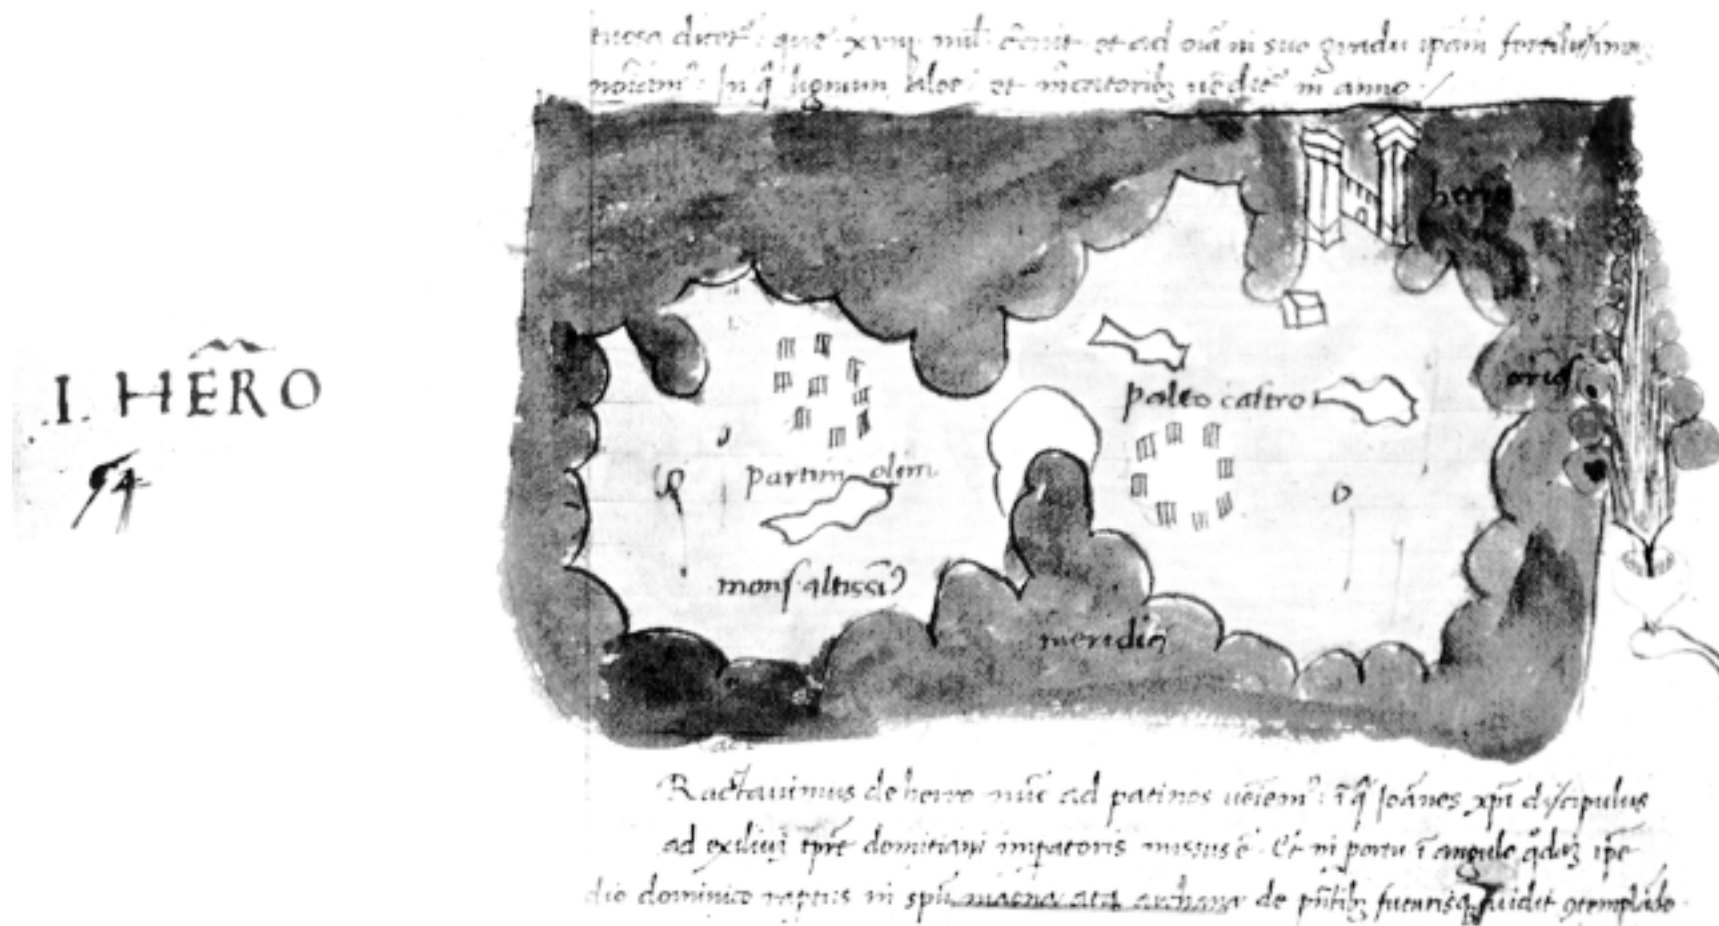 tuosa dicet̃ : que xviij mil c̃ĩnit et ad oĩa in suo gradu ip̃am fertilissimaȝ
lignum aloe et m̃catoribȝ in anno
herro
I. HẼR̃O
54
oriẽs
paleo castro
partim olim
mons altissiꝯ
meridiẽ
Ractavimus de herro nũc ad patinos : ĩ q̃ Joãnes xp̃i discipulus
ad exiliuȝ tp̃re domitiani imp̃atoris missus ẽ . Et in portu ĩ angulo q̃daȝ ip̃e
die dominico raptus in sp̃u magna atq̃ archana de p̃ñtibȝ futurisq̃ vidit ꝯtemplãdo